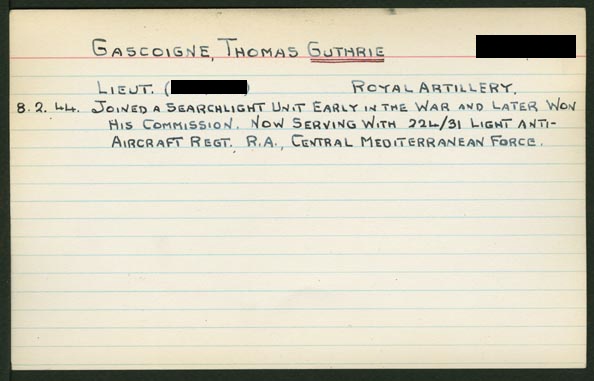 GASCOIGNE, THOMAS GUTHRIE
LIEUT. ( ) ROYAL ARTILLERY.
8.2.44. JOINED A SEARCHLIGHT UNIT EARLY IN THE WAR AND LATER WON
HIS COMMISSION. NOW SERVING WITH 224/31 LIGHT ANTI-
AIRCRAFT REGT. R.A., CENTRAL MEDITERRANEAN FORCE.